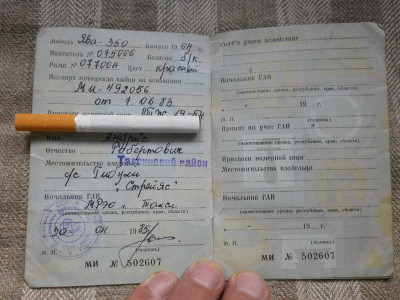 Модель Ява-350 Выпуск 1964 г.
Двигатель № 075006 Коляска № б/к
Рама № 07700Н Цвет красный
Паспорт мотоцикла выдан на основании
МИ-492056
от 7.06.83.
Имя Андрис
Отчество Робертович
Местожительство владельца
Талсинский район
с/с Гибули
"Стрейяс"
Начальник ГАИ
МРЭО г. Талси
(наименование органа, республики, края, области)
1985 г.
М. П. (подпись)
МИ № 502607
Снят с учета вследствие
Начальник ГАИ
(наименование органа, республики, края, области)
19 г.
М. П. (подпись)
Принят на учет ГАИ
(наименование органа, республики, края, области)
Присвоен номерной знак
Местожительство владельца
Начальник ГАИ
(наименование органа, республики, края, области)
19 г.
М. П. (подпись)
МИ № 502607